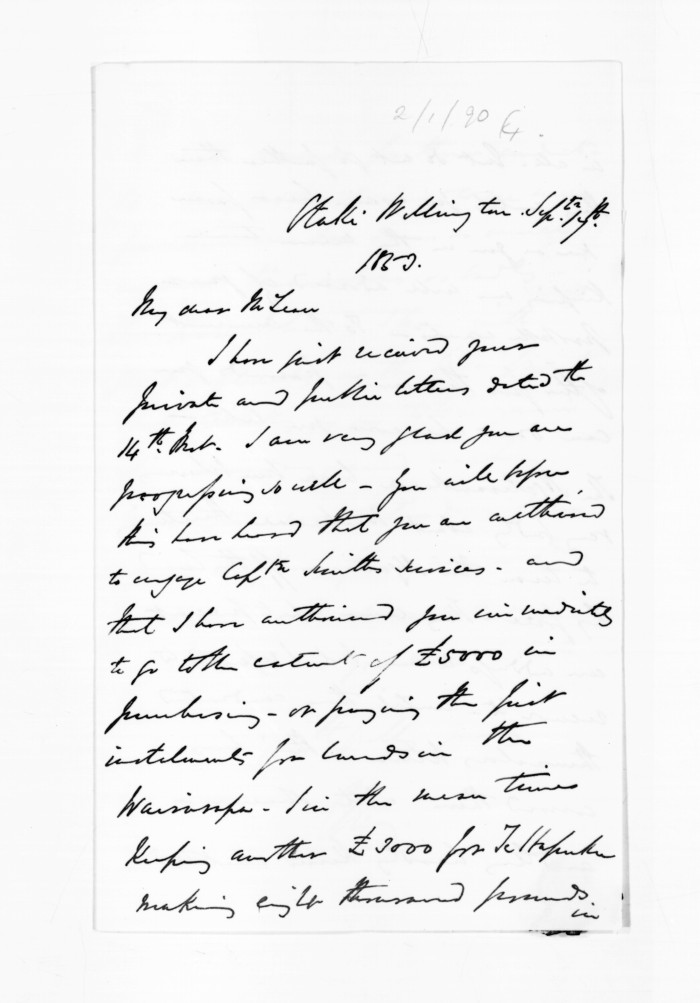 2/1/90
Otaki Wellington. Septr. 19th.
1853.
My dear McLean
I have just received your
private and public letters dated the
14th. Inst. I am very glad you are
progressing so well - You will before
this have heard that you are authorised
to engage Captn Smiths services - and
that I have authorised you immediately
to go to the extent of £5000 in
purchasing - or paying the first
instalments for lands in the
Wairarapa - I in the mean time
Keeping another £3000 for Te Hapuku
making eight thousand pounds
in